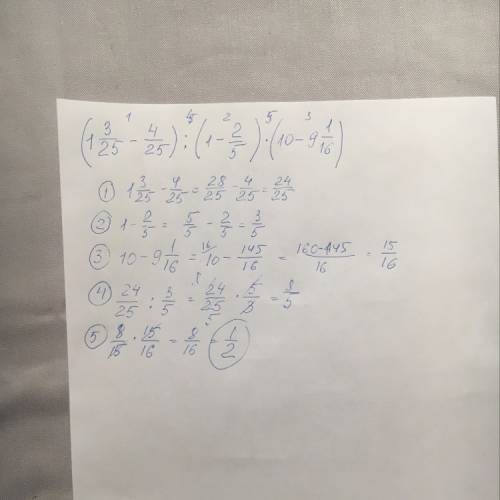 1 4 2 5 3
(1 3/25 - 4/25) : (1 - 2/5) · (10 - 9 1/16)
① 1 3/25 - 4/25 = 28/25 - 4/25 = 24/25
② 1 - 2/5 = 5/5 - 2/5 = 3/5
③ 10 - 9 1/16 = 10 16 - 145/16 = 160-145/16 = 15/16
④ 24/25 : 3/5 = 24/25 · 5/3 = 8/5
8 5
⑤ 8/15 · 15/16 = 8/16 = 1/2